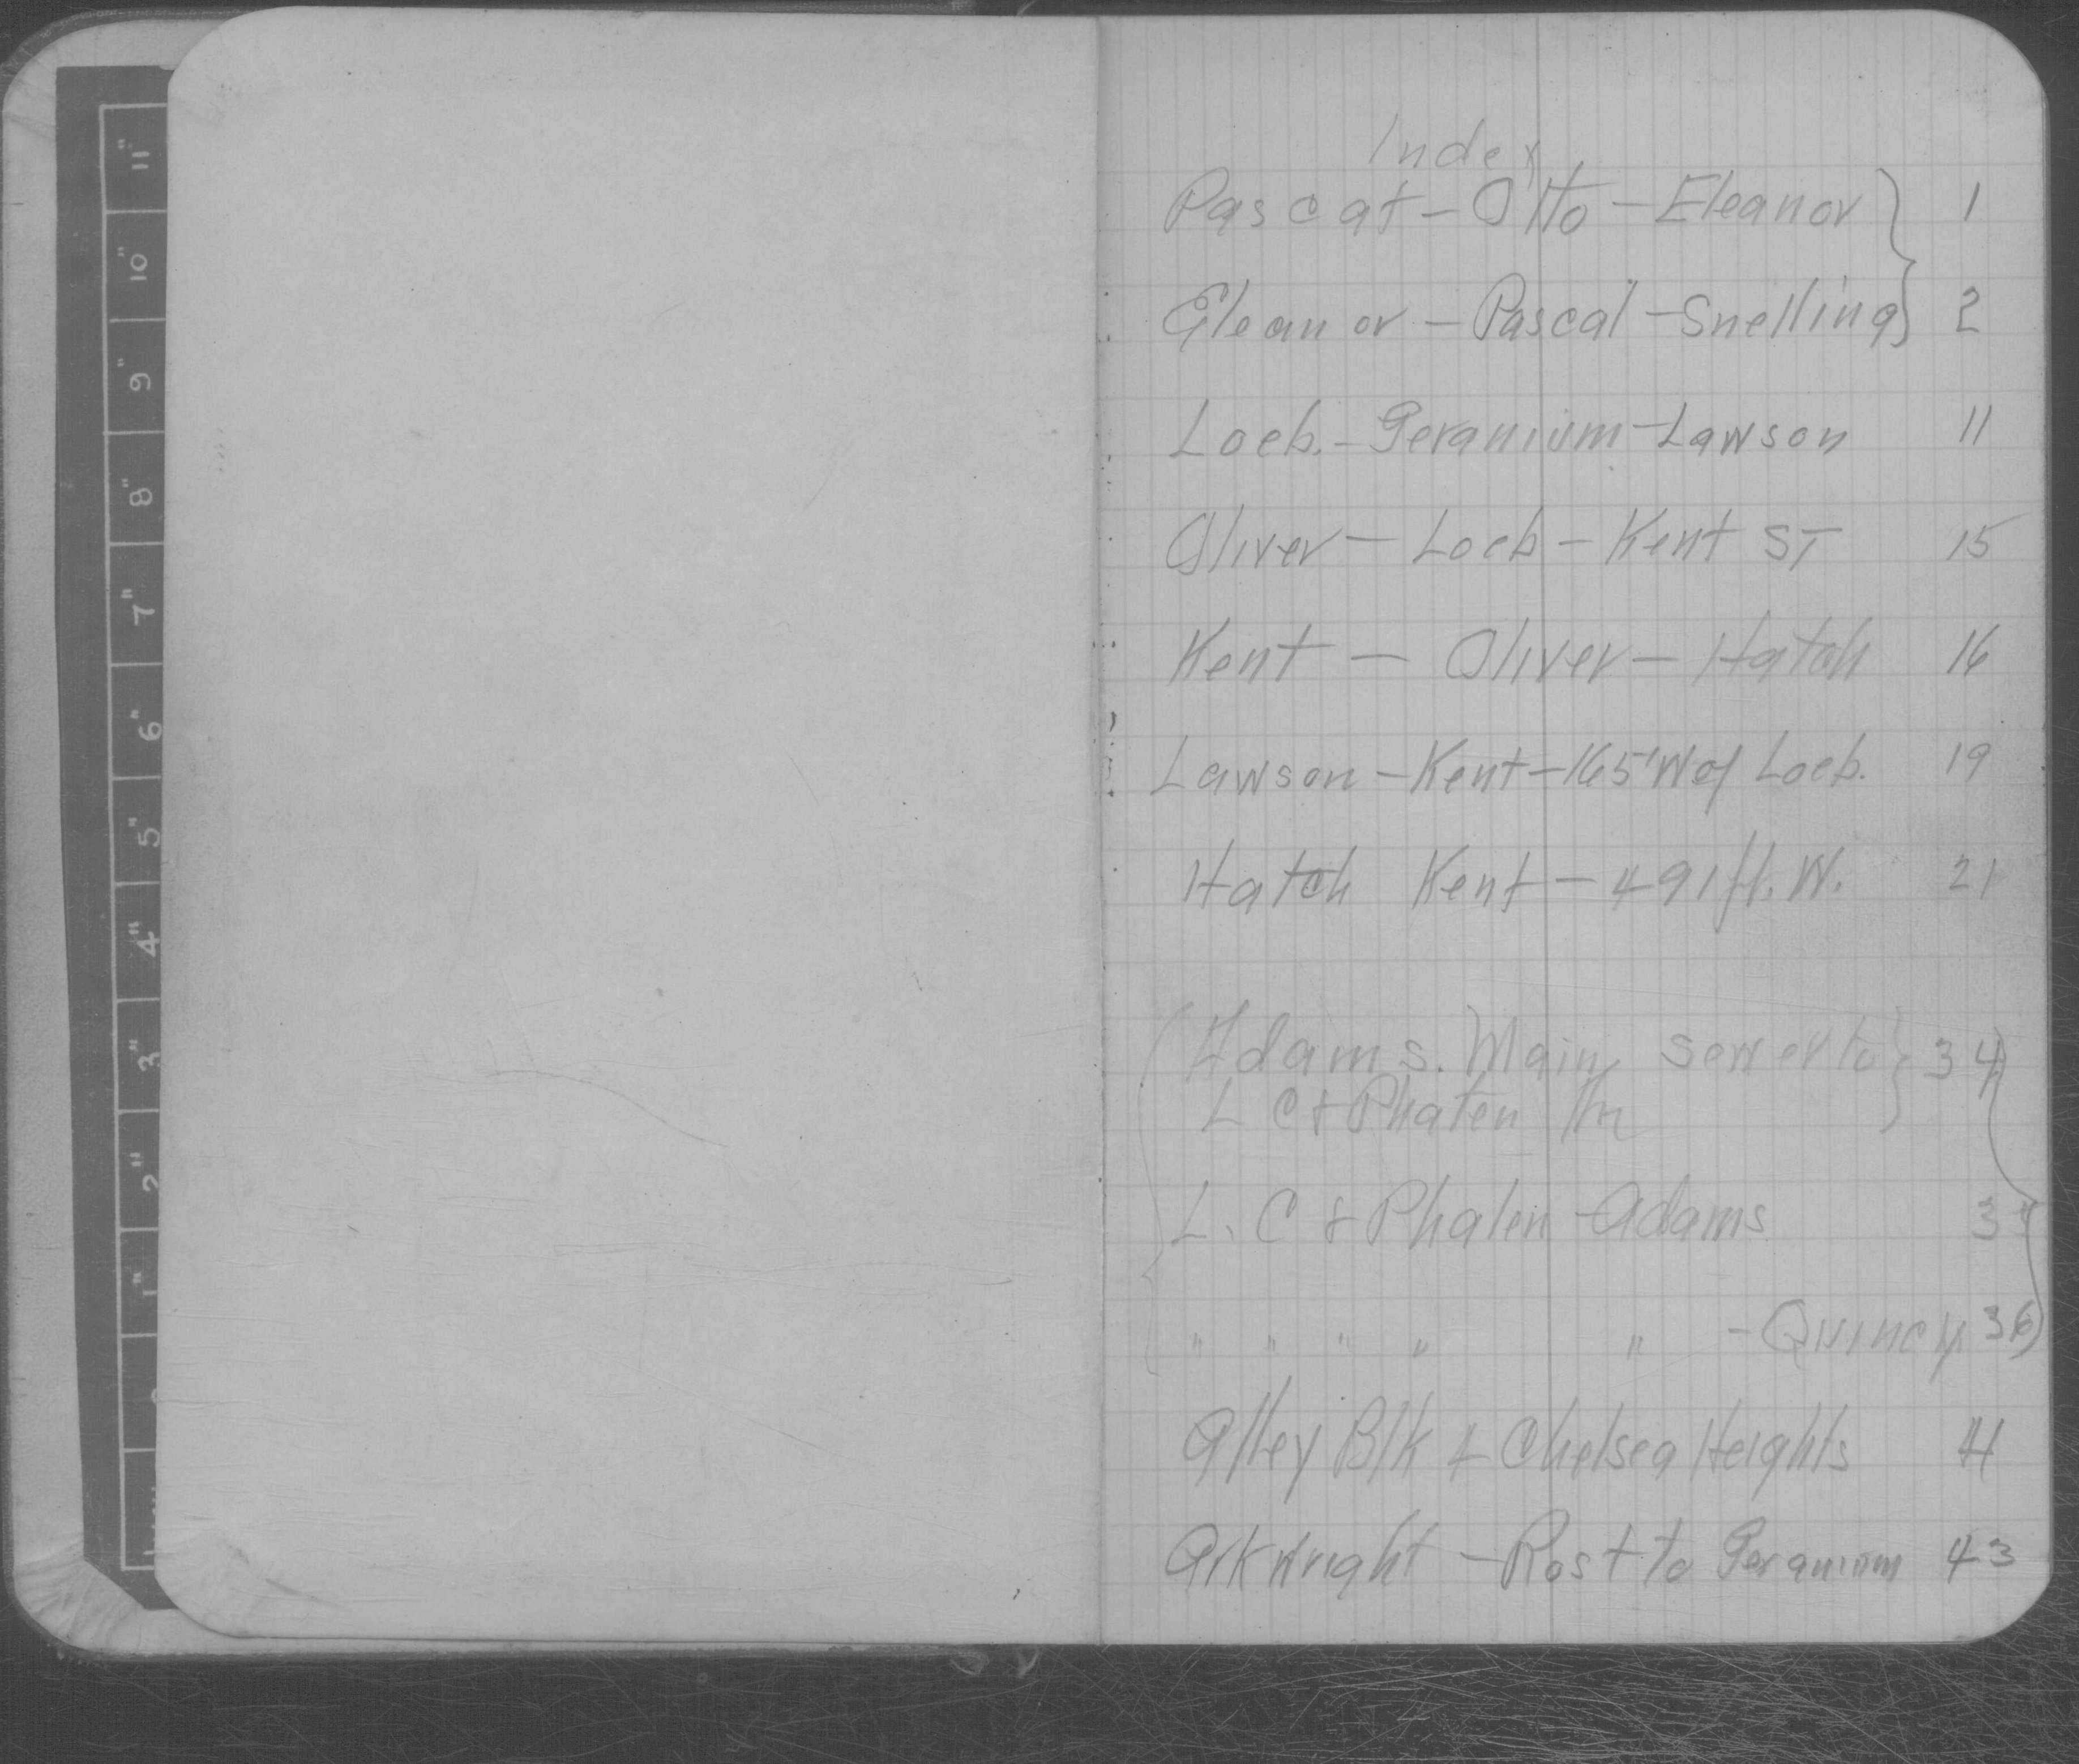 Index
Pascal - Otto - Eleanor } 1
Eleanor - Pascal - Snelling } 2
Loeb. - Geranium - Lawson 11
Oliver - Loeb - Kent ST 15
Kent - Oliver - Hatch 16
Lawson - Kent - 165' W of Loeb. 19
Hatch Kent - 491 ft. W. 21
Adams. Main Sewer to } 34
L C & Phalen
L. C & Phalen - Adams 3
" " " " " - Quincy 36
Alley Blk 4 Chelsea Heights 41
Arkwright - Rost to Geranium 43
11" 10" 9" 8" 7" 6" 5" 4" 3" 2" 1"